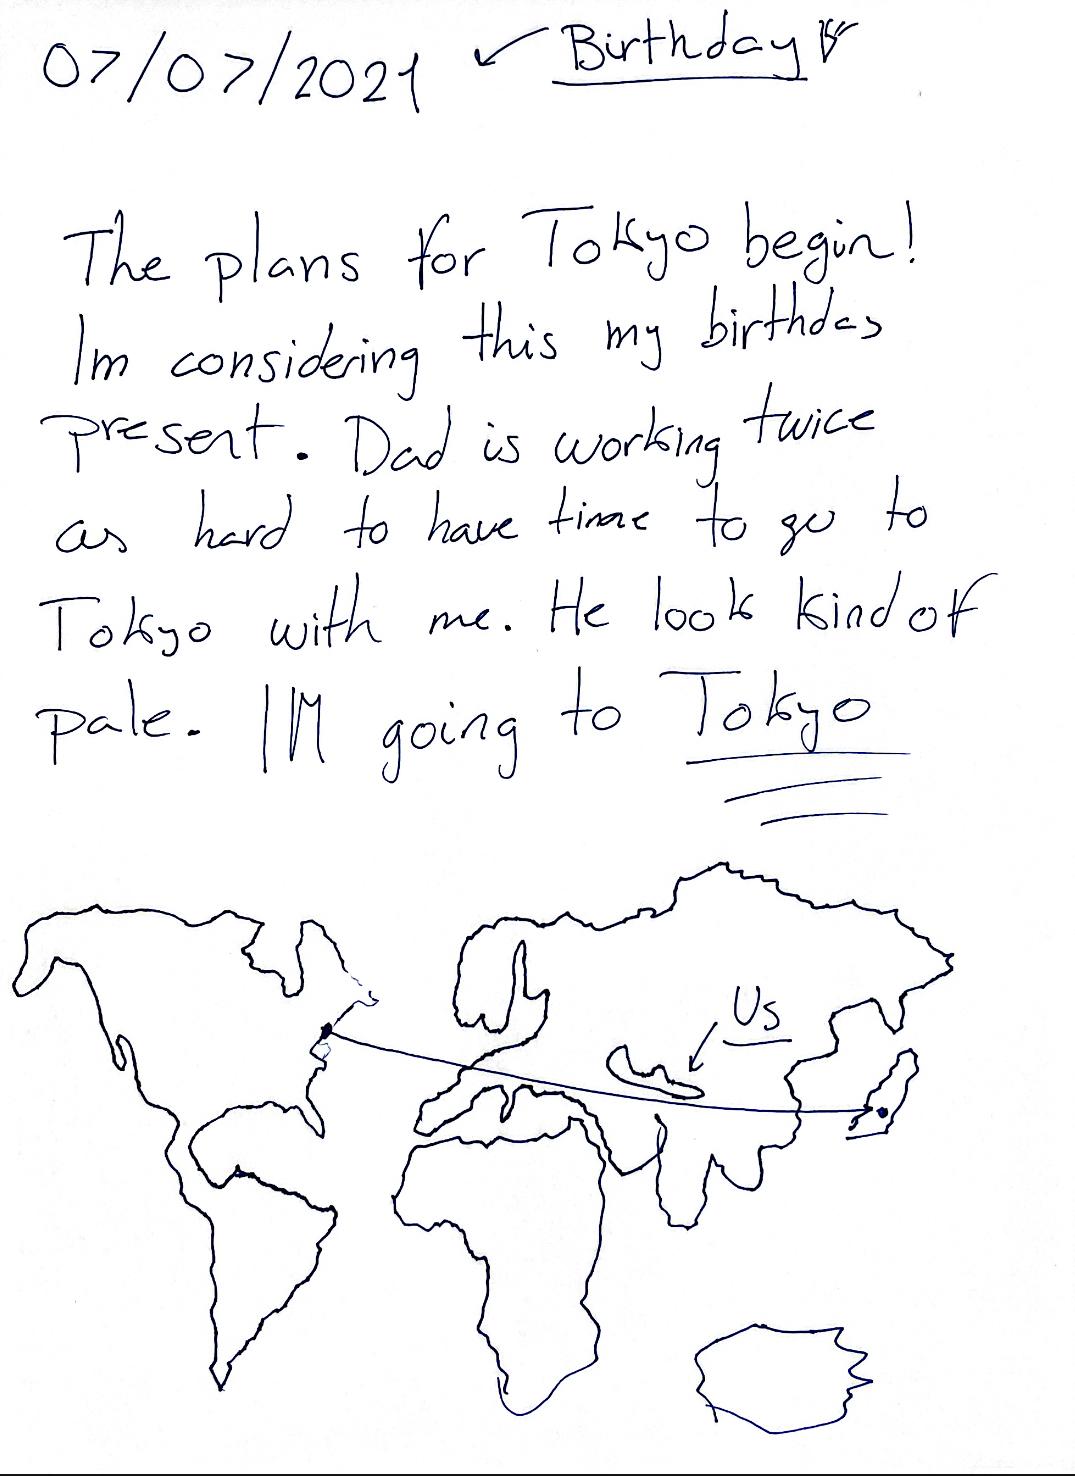 07/07/2021 Birthday
The plans for Tokyo begin!
Im considering this my birthday
present. Dad is working twice
as hard to have time to go to
Tokyo with me. He look kind of
pale. IM going to Tokyo
Us